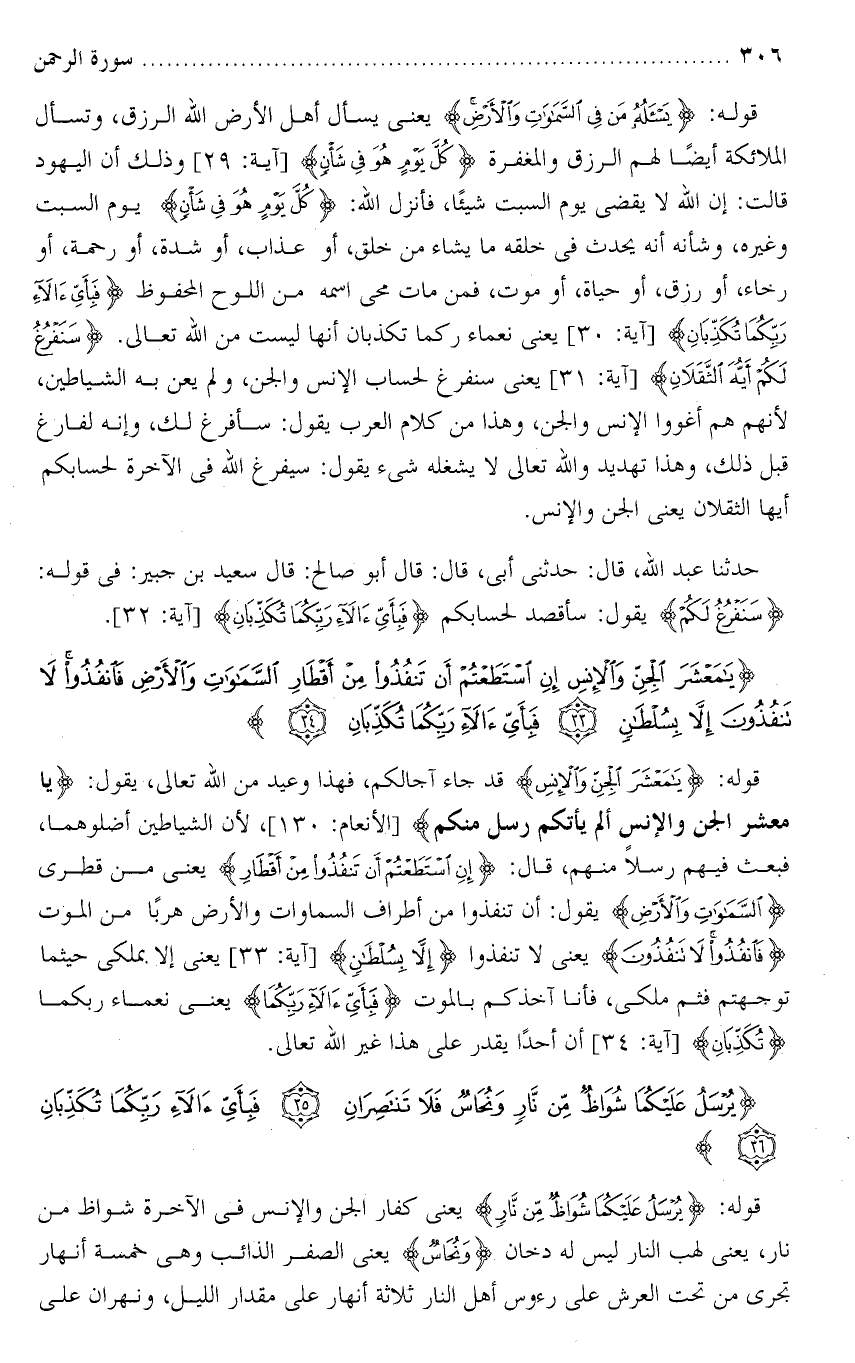 ٣٠٦ ........................................................................ سورة الرحمن
قوله: ﴿يَسْـَٔلُهُۥ مَن فِى ٱلسَّمَـٰوَٰتِ وَٱلْأَرْضِ ۚ﴾ يعنى يسأل أهل الأرض الله الرزق، وتسأل
الملائكة أيضًا لهم الرزق والمغفرة ﴿كُلَّ يَوْمٍ هُوَ فِى شَأْنٍ﴾ [آية: ٢٩] وذلك أن اليهود
قالت: إن الله لا يقضى يوم السبت شيئًا، فأنزل الله: ﴿كُلَّ يَوْمٍ هُوَ فِى شَأْنٍ﴾ يوم السبت
وغيره، وشأنه أنه يحدث فى خلقه ما يشاء من خلق، أو عذاب، أو شدة، أو رحمة، أو
رخاء، أو رزق، أو حياة، أو موت، فمن مات محى اسمه من اللوح المحفوظ ﴿فَبِأَىِّ ءَالَآءِ
رَبِّكُمَا تُكَذِّبَانِ﴾ [آية: ٣٠] يعنى نعماء ركما تكذبان أنها ليست من الله تعالى. ﴿سَنَفْرُغُ
لَكُمْ أَيُّهَ ٱلثَّقَلَانِ﴾ [آية: ٣١] يعنى سنفرغ لحساب الإنس والجن، ولم يعن به الشياطين،
لأنهم هم أغووا الإنس والجن، وهذا من كلام العرب يقول: سأفرغ لك، وإنه لفارغ
قبل ذلك، وهذا تهديد والله تعالى لا يشغله شىء يقول: سيفرغ الله فى الآخرة لحسابكم
أيها الثقلان يعنى الجن والإنس.
حدثنا عبد الله، قال: حدثنى أبى، قال: قال أبو صالح: قال سعيد بن جبير: فى قوله:
﴿سَنَفْرُغُ لَكُمْ﴾ يقول: سأقصد لحسابكم ﴿فَبِأَىِّ ءَالَآءِ رَبِّكُمَا تُكَذِّبَانِ﴾ [آية: ٣٢].
﴿يَـٰمَعْشَرَ ٱلْجِنِّ وَٱلْإِنسِ إِنِ ٱسْتَطَعْتُمْ أَن تَنفُذُوا۟ مِنْ أَقْطَارِ ٱلسَّمَـٰوَٰتِ وَٱلْأَرْضِ فَٱنفُذُوا۟ ۚ لَا
تَنفُذُونَ إِلَّا بِسُلْطَـٰنٍ ٣٣ فَبِأَىِّ ءَالَآءِ رَبِّكُمَا تُكَذِّبَانِ ٣٤﴾
قوله: ﴿يَـٰمَعْشَرَ ٱلْجِنِّ وَٱلْإِنسِ﴾ قد جاء آجالكم، فهذا وعيد من الله تعالى، يقول: ﴿يا
معشر الجن والإنس ألم يأتكم رسل منكم﴾ [الأنعام: ١٣٠]، لأن الشياطين أضلوهما،
فبعث فيهم رسلاً منهم، قال: ﴿إِنِ ٱسْتَطَعْتُمْ أَن تَنفُذُوا۟ مِنْ أَقْطَارِ﴾ يعنى من قطرى
﴿ٱلسَّمَـٰوَٰتِ وَٱلْأَرْضِ﴾ يقول: أن تنفذوا من أطراف السماوات والأرض هربًا من الموت
﴿فَٱنفُذُوا۟ ۚ لَا تَنفُذُونَ﴾ يعنى لا تنفذوا ﴿إِلَّا بِسُلْطَـٰنٍ﴾ [آية: ٣٣] يعنى إلا بملكى حيثما
توجهتم فثم ملكى، فأنا آخذكم بالموت ﴿فَبِأَىِّ ءَالَآءِ رَبِّكُمَا﴾ يعنى نعماء ربكما
﴿تُكَذِّبَانِ﴾ [آية: ٣٤] أن أحدًا يقدر على هذا غير الله تعالى.
﴿يُرْسَلُ عَلَيْكُمَا شُوَاظٌ مِّن نَّارٍ وَنُحَاسٌ فَلَا تَنتَصِرَانِ ٣٥ فَبِأَىِّ ءَالَآءِ رَبِّكُمَا تُكَذِّبَانِ
٣٦﴾
قوله: ﴿يُرْسَلُ عَلَيْكُمَا شُوَاظٌ مِّن نَّارٍ﴾ يعنى كفار الجن والإنس فى الآخرة شواظ من
نار، يعنى لهب النار ليس له دخان ﴿وَنُحَاسٌ﴾ يعنى الصفر الذائب وهى خمسة أنهار
تجرى من تحت العرش على رءوس أهل النار ثلاثة أنهار على مقدار الليل، ونهران على